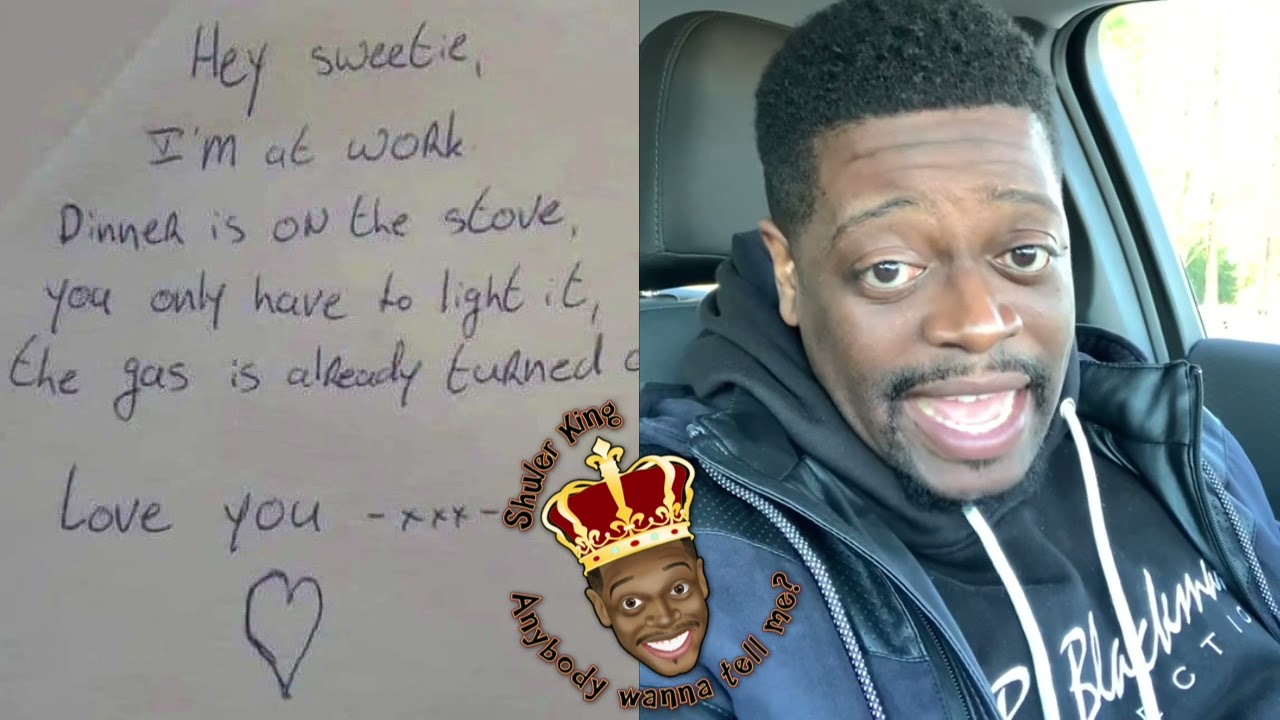 Hey sweetie,
I'm at work.
Dinner is on the stove,
you only have to light it,
the gas is already turned
Love you -xxx-
Shuler King
Anybody wanna tell me?